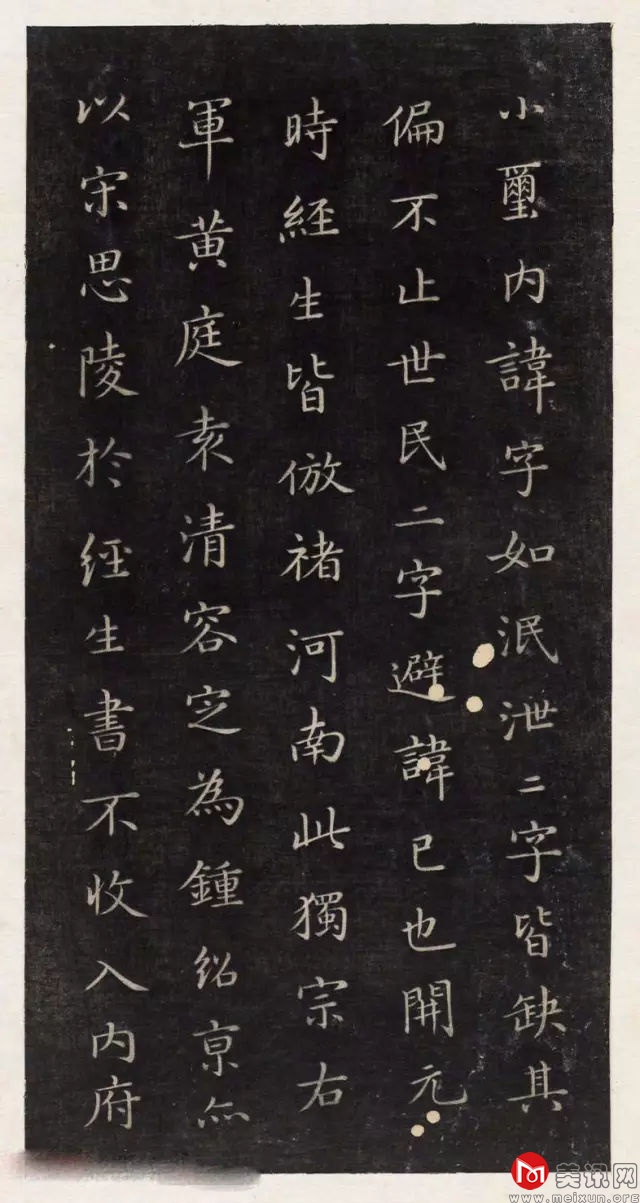 小璽内諱字如泯泄二字皆缺其
偏不止世民二字避諱已也開元
時經生皆倣褚河南此獨宗右
軍黄庭袁清容定為鍾紹京亦
以宋思陵於經生書不收入内府
美讯网
www.meixun.org